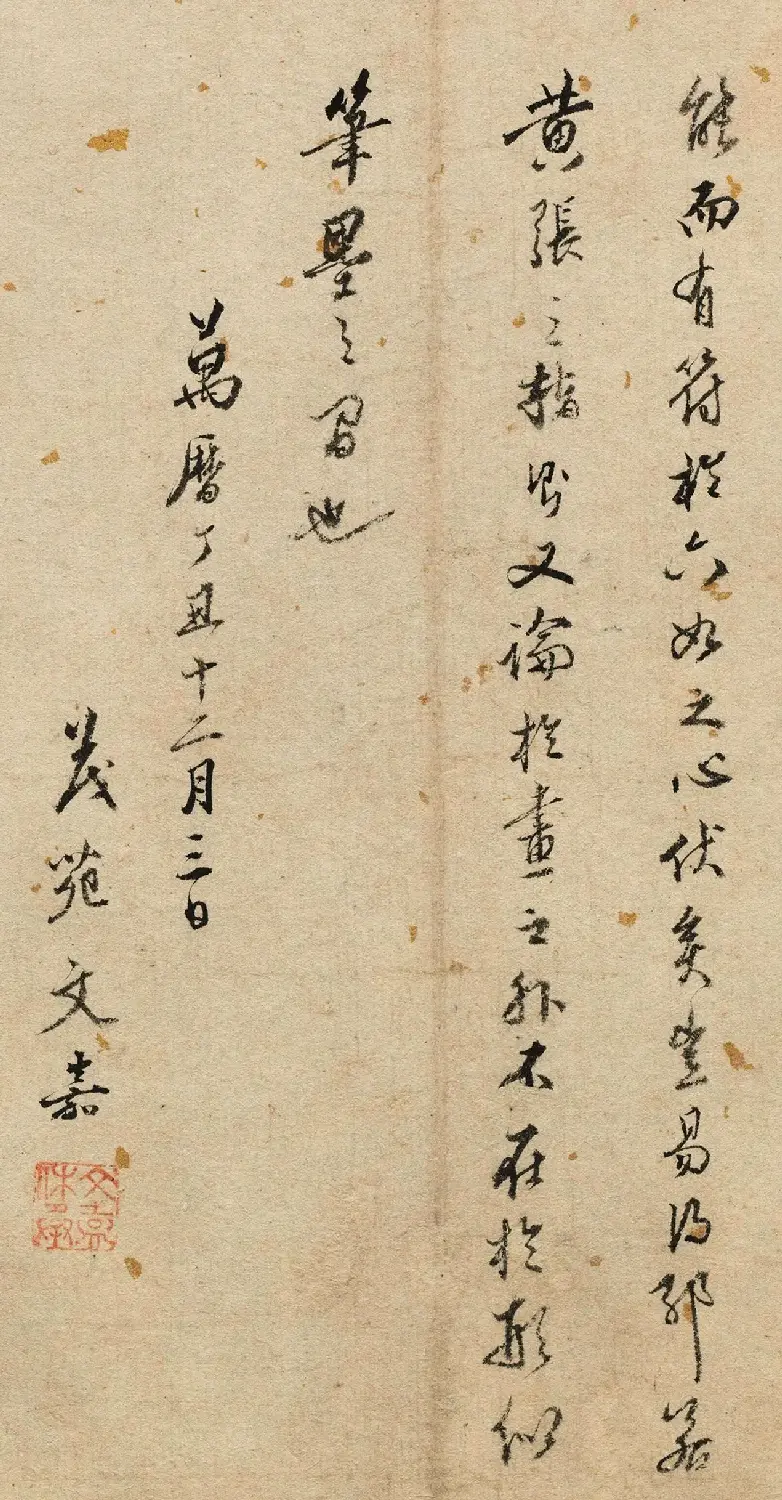 能而有符於六如之心伏矣豈易得耶若
黄張之指則又論於畫之外不在於形似
筆墨之間也
萬曆丁丑十二月三日
茂苑文嘉
文嘉休承